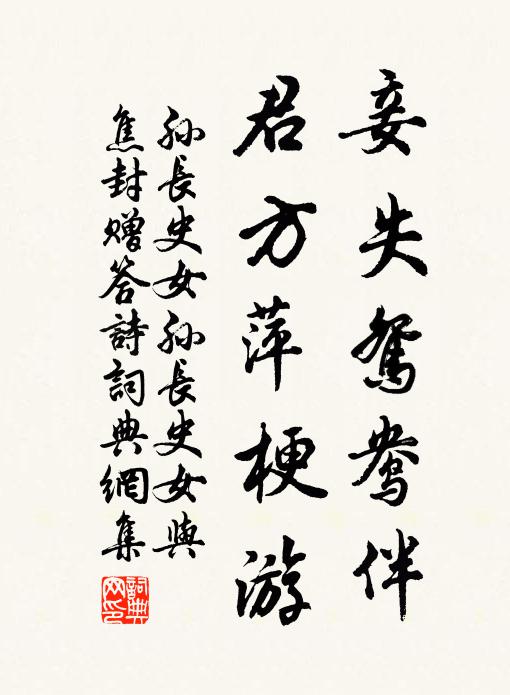 妾失鴛鴦伴
君方萍梗游
孙長史女孙長史女與
焦封贈答詩詞典網集
詞典网印